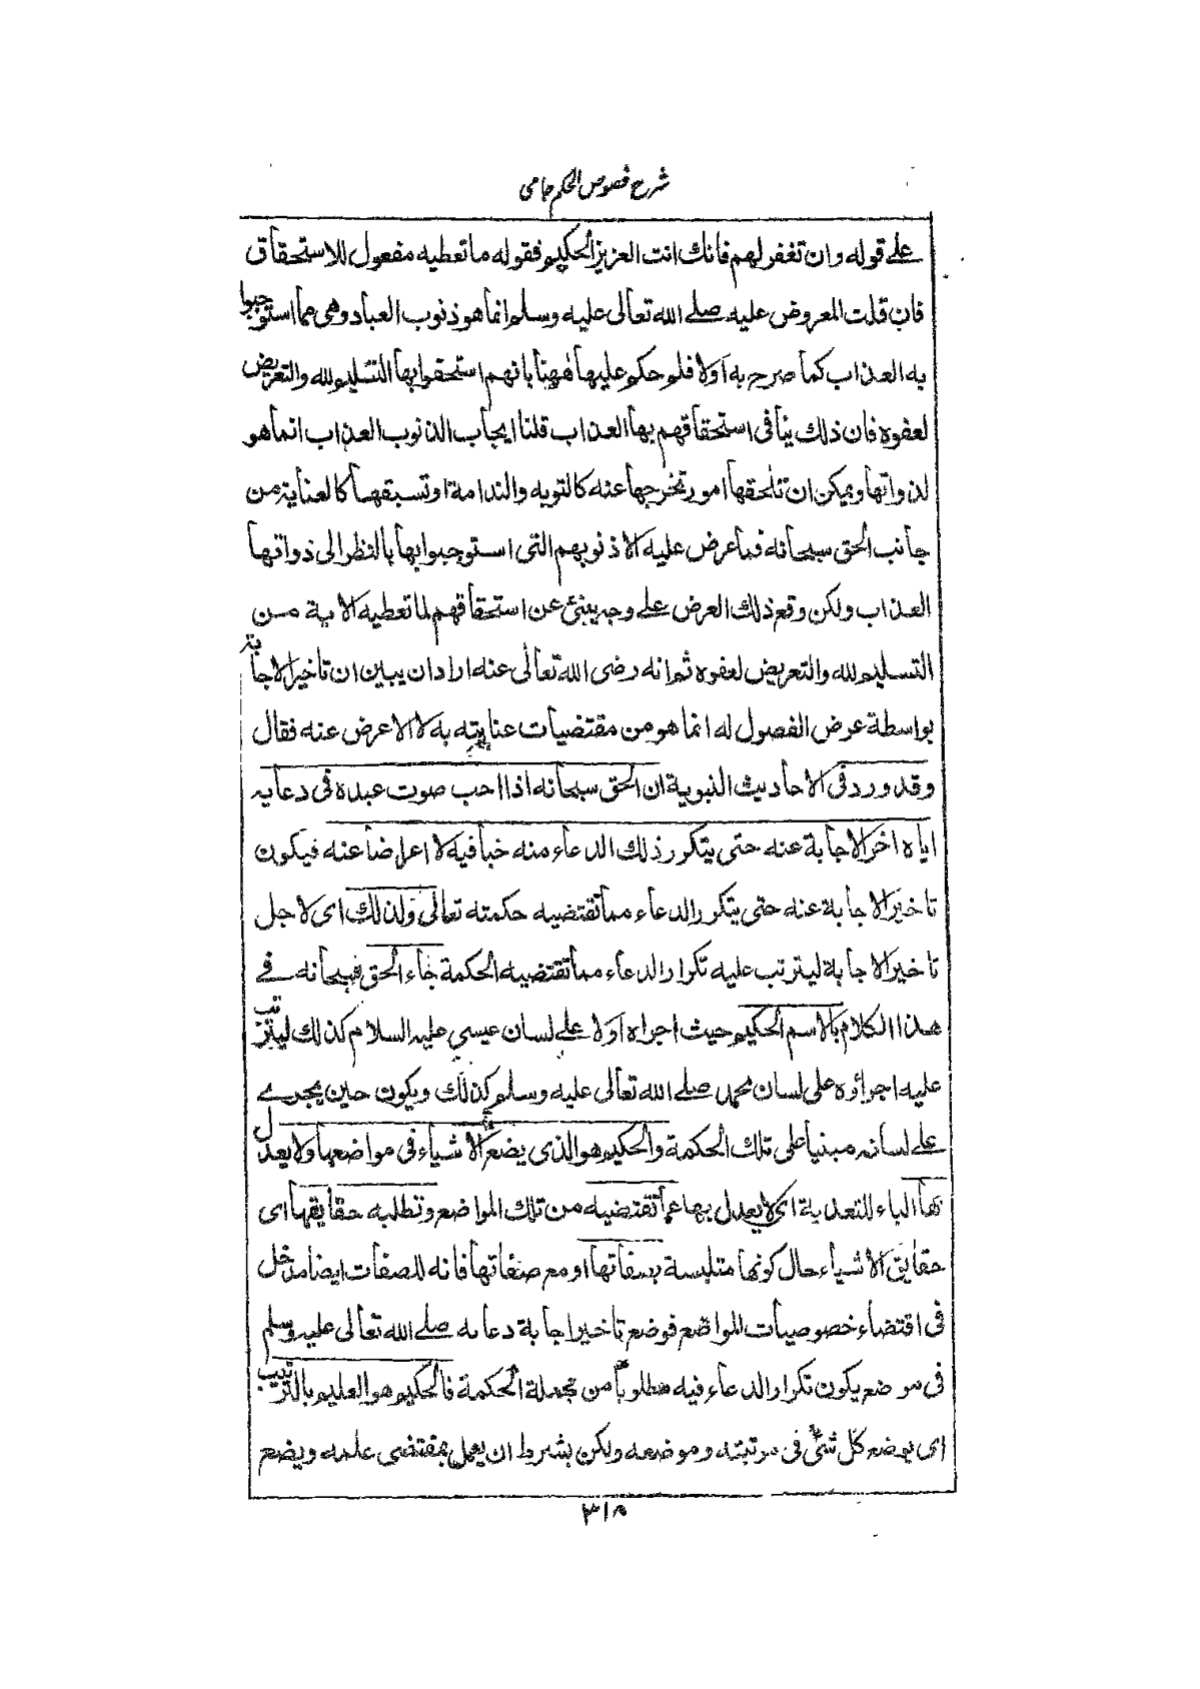 شرح فصوص الحکم جامی
علے قوله وان تغفر لهم فانك انت العزيز الحكيم فقوله ما تعطيه مفعول للاستحقاق
فان قلت المعروض عليه صلے الله تعالى عليه وسلم انما هو ذنوب العباد وهى مما استوجبوا
به العذاب كما صرح به اولا فلم حكم عليها ههنا بانهم استحقوا بها التسليم لله والتعريض
لعفوه فان ذلك ينافى استحقاقهم بها العذاب قلنا ايجاب الذنوب العذاب انما هو
لذواتها ويمكن ان تلحقها امور تخرجها عنه كالتوبه والندامة او تسبقها كالعناية من
جانب الحق سبحانه فما عرض عليه الا ذنوبهم التى استوجبوا بها بالنظر الى ذواتها
العذاب ولكن وقع ذلك العرض علے وجه ينبئ عن استحقاقهم لما تعطيه الاية من
التسليم لله والتعريض لعفوه ثم انه رضى الله تعالى عنه اراد ان يبين ان تاخير الاجابة
بواسطة عرض الفصول له انما هو من مقتضيات عنايته به لا لاعرض عنه فقال
وقد ورد فى الاحاديث النبوية ان الحق سبحانه اذا احب صوت عبده فى دعايه
اياه اخر الاجابة عنه حتى يتكرر ذلك الدعاء منه حبا فيه لا اعراضا عنه فيكون
تاخير الاجابة عنه حتى يتكرر الدعاء مما تقتضيه حكمته تعالى ولذلك اى لاجل
تاخير الاجابة ليترتب عليه تكرار الدعاء مما تقتضيه الحكمة جاء الحق سبحانه فے
هذا الكلام بالاسم الحكيم حيث اجراه اولا علے لسان عيسى عليه السلام كذلك ليترتب
عليه اجراؤه على لسان محمد صلے الله تعالى عليه وسلم كذلك ويكون حين يجرے
علے لسانه مبنيا على تلك الحكمة والحكيم هو الذى يضع الاشياء فى مواضعها ولا يعدل
بها الباء للتعدية اى لا يعدل بها عما تقتضيه من تلك المواضع وتطلبه حقايقها اى
حقايق الاشياء حال كونها متلبسة بصفاتها او مع صفاتها فانه للصفات ايضا مدخل
فى اقتضاء خصوصيات المواضع فوضع تاخير اجابة دعائه صلے الله تعالى عليه وسلم
فى موضع يكون تكرار الدعاء فيه مطلوبا من جملة الحكمة فالحكيم هو العليم بالترتيب
اى يضع كل شئ فى مرتبته وموضعه ولكن بشرط ان يعمل بمقتضى علمه ويضع
۳۱۸